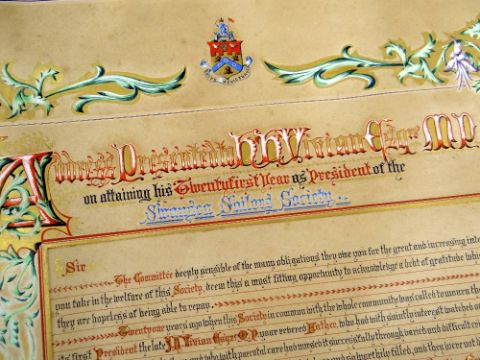 Address Presented to H H Vivian Esqre M.P.
on attaining his Twentyfirst Year as President of the
Swansea Sailors Society
Sir
The Committee deeply sensible of the many obligations they owe you for the great and increasing inte
you take in the welfare of this Society, deem this a most fitting opportunity to acknowledge a debt of gratitude whi
they are hopeless of being able to repay.
years ago when this Society in common with the whole community was called to mourn the
its first President the late J H Vivian Esqre M.P. your revered Father, who had with saintly interest watched o
and who with parental care had nursed it successfully through varied and difficult